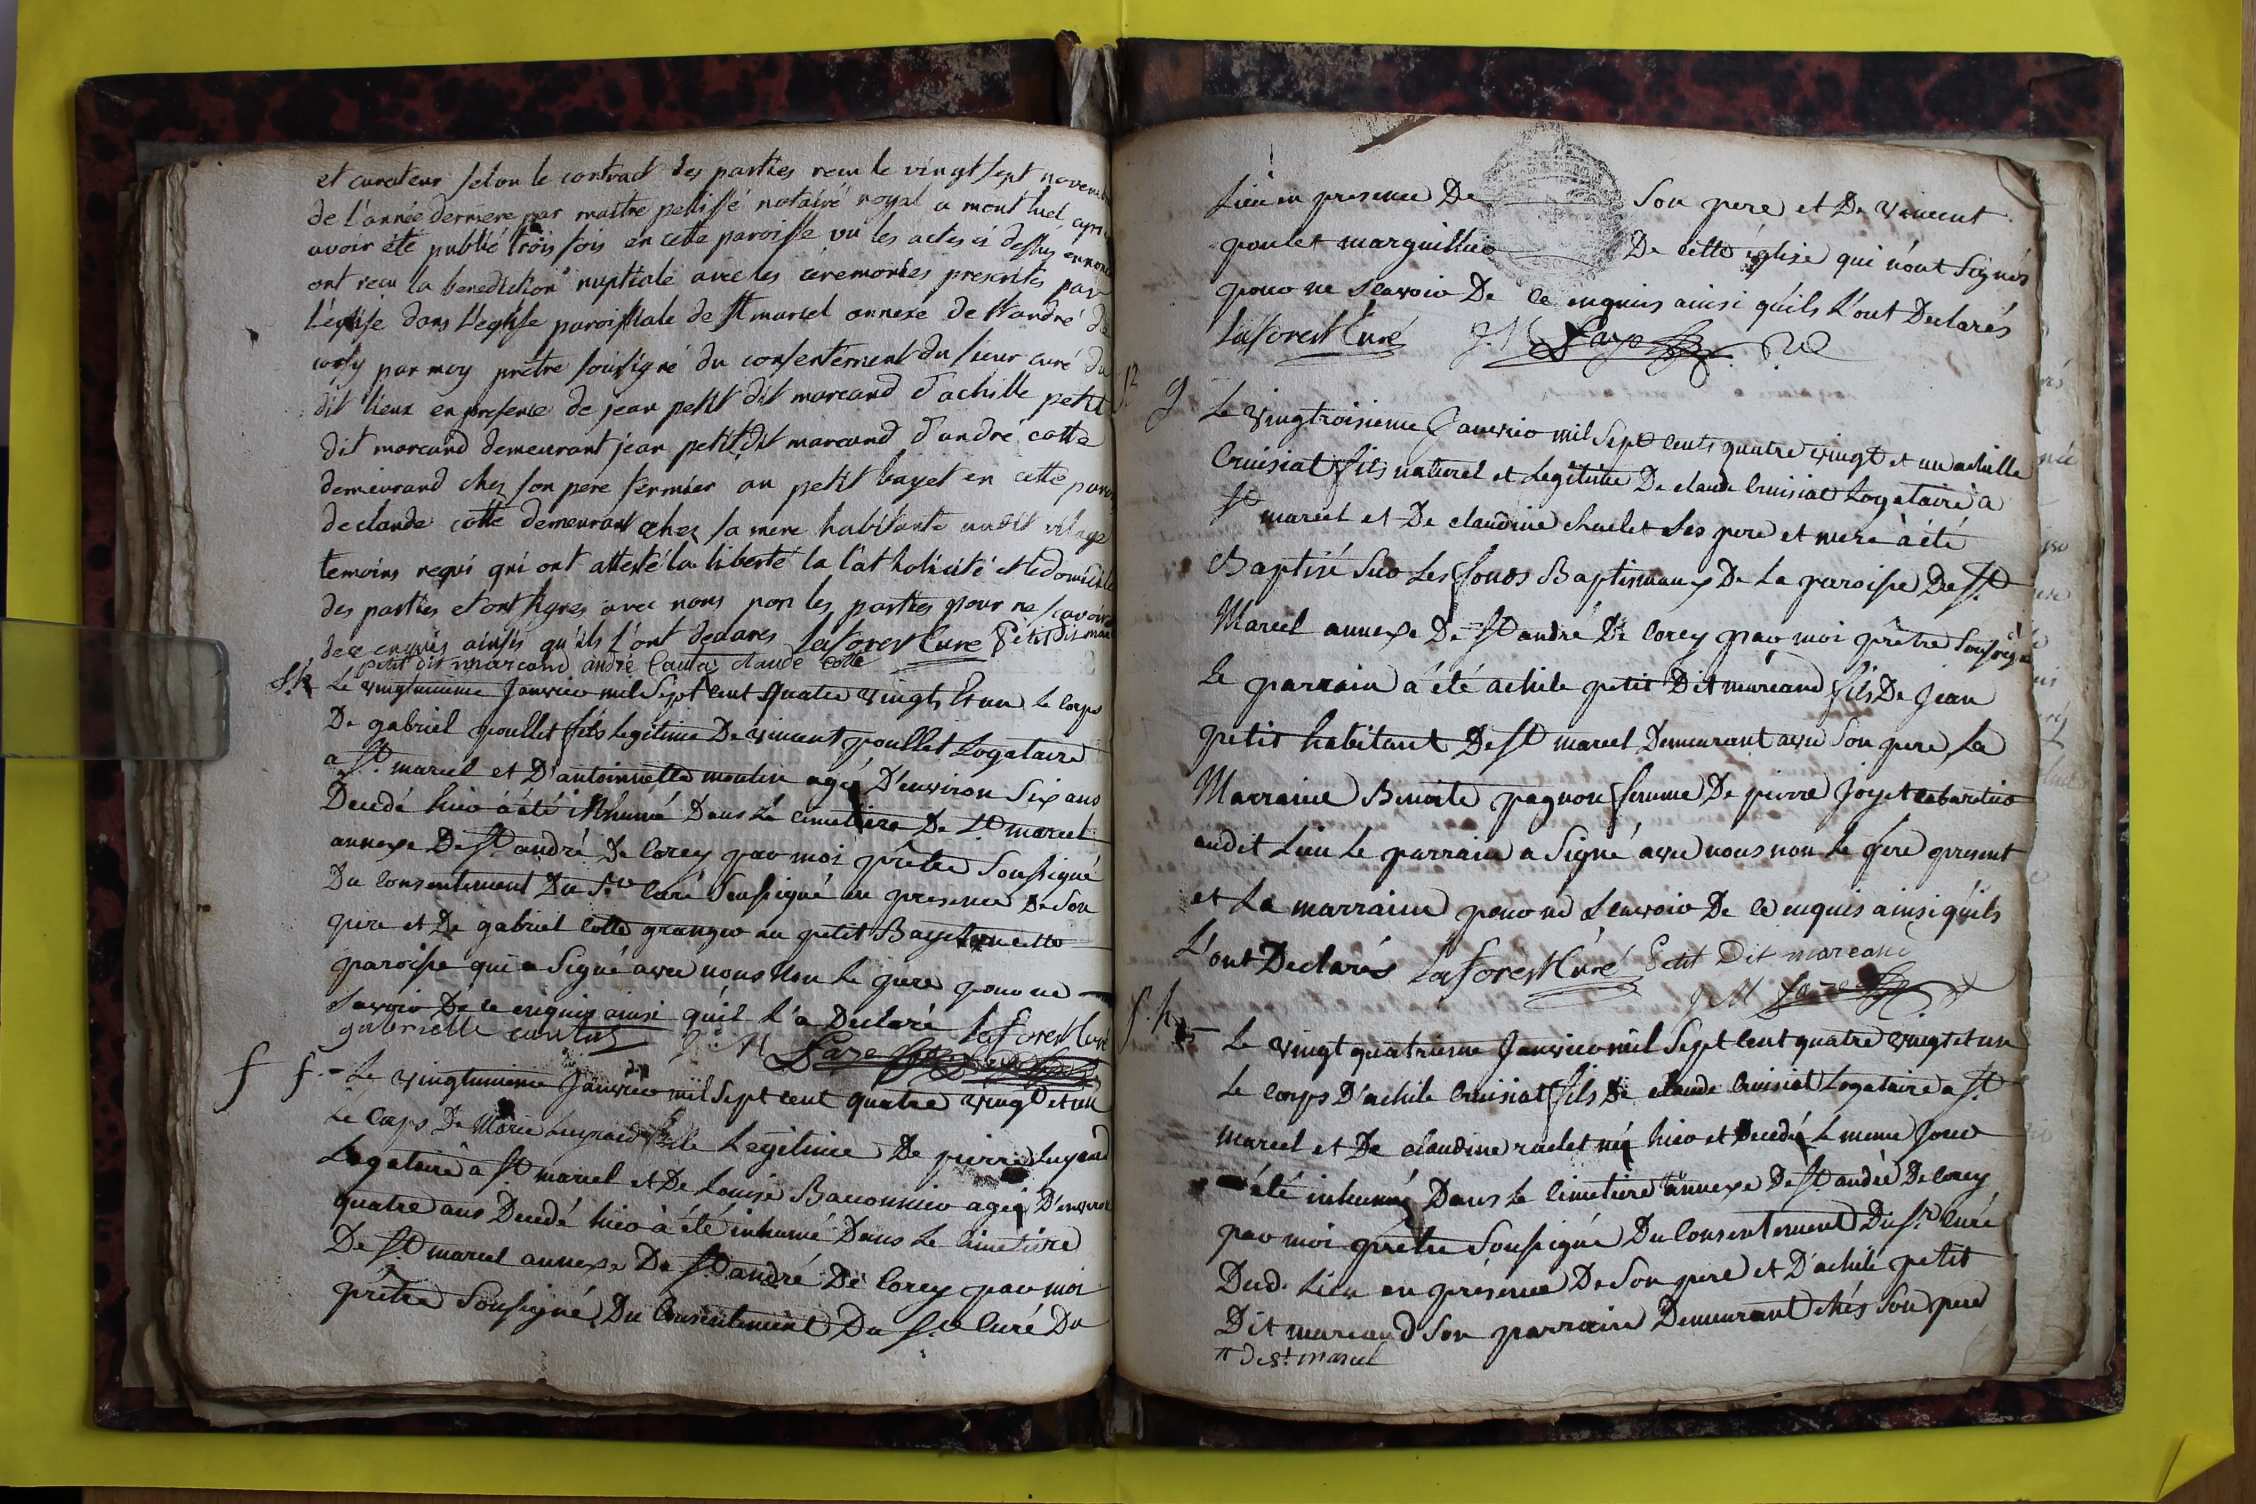 et curateur selon le contract des parties recu le vingt sept novembre
de l'année derniere par maitre pelissé notaire royal a mont luel apres
avoir été publié trois fois en cette paroisse vu les actes ci dessus
ont recu la benediction nuptiale avec les ceremonies prescrites par
L'eglise dans L'eglise paroissiale de St marcel annexe de St andré de
corcy par moy prêtre soussigné du consentement du sieur curé du
dit lieux en presence de jean petit dit marcand d'achille petit
dit marcand demeurant jean petit dit marcand d'andré cotte
demeurand chez son pere fermier au petit bayet en cette paroisse
de claude cotte demeurant chez sa mere habitante audit vilage
temoins requi qui ont attesté la liberté la Catholicité et le domicile
des parties et ont signes avec nous non les parties pour ne scavoir
de ce enquis ainsis qu'ils l'ont declares Laforest Curé Petit dit marcand
petit dit marcand andré Cauta claude cotte
Le vingtunieme Janvier mil Sept cent quatre vingts et un le corps
De gabriel poullet fils legitime De vincent poullet Logataire
a St marcel et D'antoinnette moulin agé D'environ Six ans
Decedé hier à été inhumé Dans Le cimetiere De St marcel
annexe De St andré De Corcy par moi prêtre Soussigné
Du consentement Du Sr Curé Soussigné en presence De Son
pere et De gabriel Cotte granger au petit Bayet en cette
paroisse qui a Signé avec nous Non Le pere pour ne
Savoir De ce enquis ainsi qu'il L'a Declaré Laforest Curé
gabrielle J. M
f f. Le vingtunieme Janvier mil Sept cent quatre vingt et un
Le Corps De Marie fille Legitime De pierre
Logataire à St marcel et De Louise agée D'environ
quatre ans Decedé hier à été inhumé Dans Le Cimetiere
De St marcel annexe De St andré De Corcy par moi
prêtre Soussigné Du Consentement Du Sr Curé Du
Lieu en presence De Son pere et De vincent
poulet marguillier De cette église qui n'ont Signés
pour ne Scavoir De ce enquis ainsi qu'ils L'ont Declarés
Laforest Curé J. M
Le vingtroisieme Janvier mil Sept cents quatre vingt et un achille
Cruisiat fils naturel et Legitime De claude Cruisiat Logataire a
St marcel et De claudine chaelet Ses pere et mere à été
Baptisé Sur Les fonds Baptismaux De La paroisse De St
Marcel annexe De St andré De Corcy par moi prêtre Soussigné
Le parrain a été achile petit Dit marcand fils De Jean
petit habitant De St marcel Demeurant avec Son pere La
Marraine Benoite pagnon femme De pierre Joyet cabaretier
audit Lieu Le parrain a Signé avec nous non Le pere present
et La marraine pour ne Scavoir De ce enquis ainsi qu'ils
L'ont Declarés Laforest Curé Petit Dit marcand
J M
Le vingt quatrieme Janvier mil Sept cent quatre vingt et un
Le corps D'achile Cruisiat fils De claude Cruisiat Logataire a St
marcel et De claudine raelet né hier et Decedé Le meme Jour
été inhumé Dans Le Cimetiere annexe De St andré De Corcy
par moi prêtre Soussigné Du Consentement Du Sr Curé
Dud. Lieu en présence De Son pere et D'achile petit
Dit marcand Son parrain Demeurant chés Son pere
de st marcel